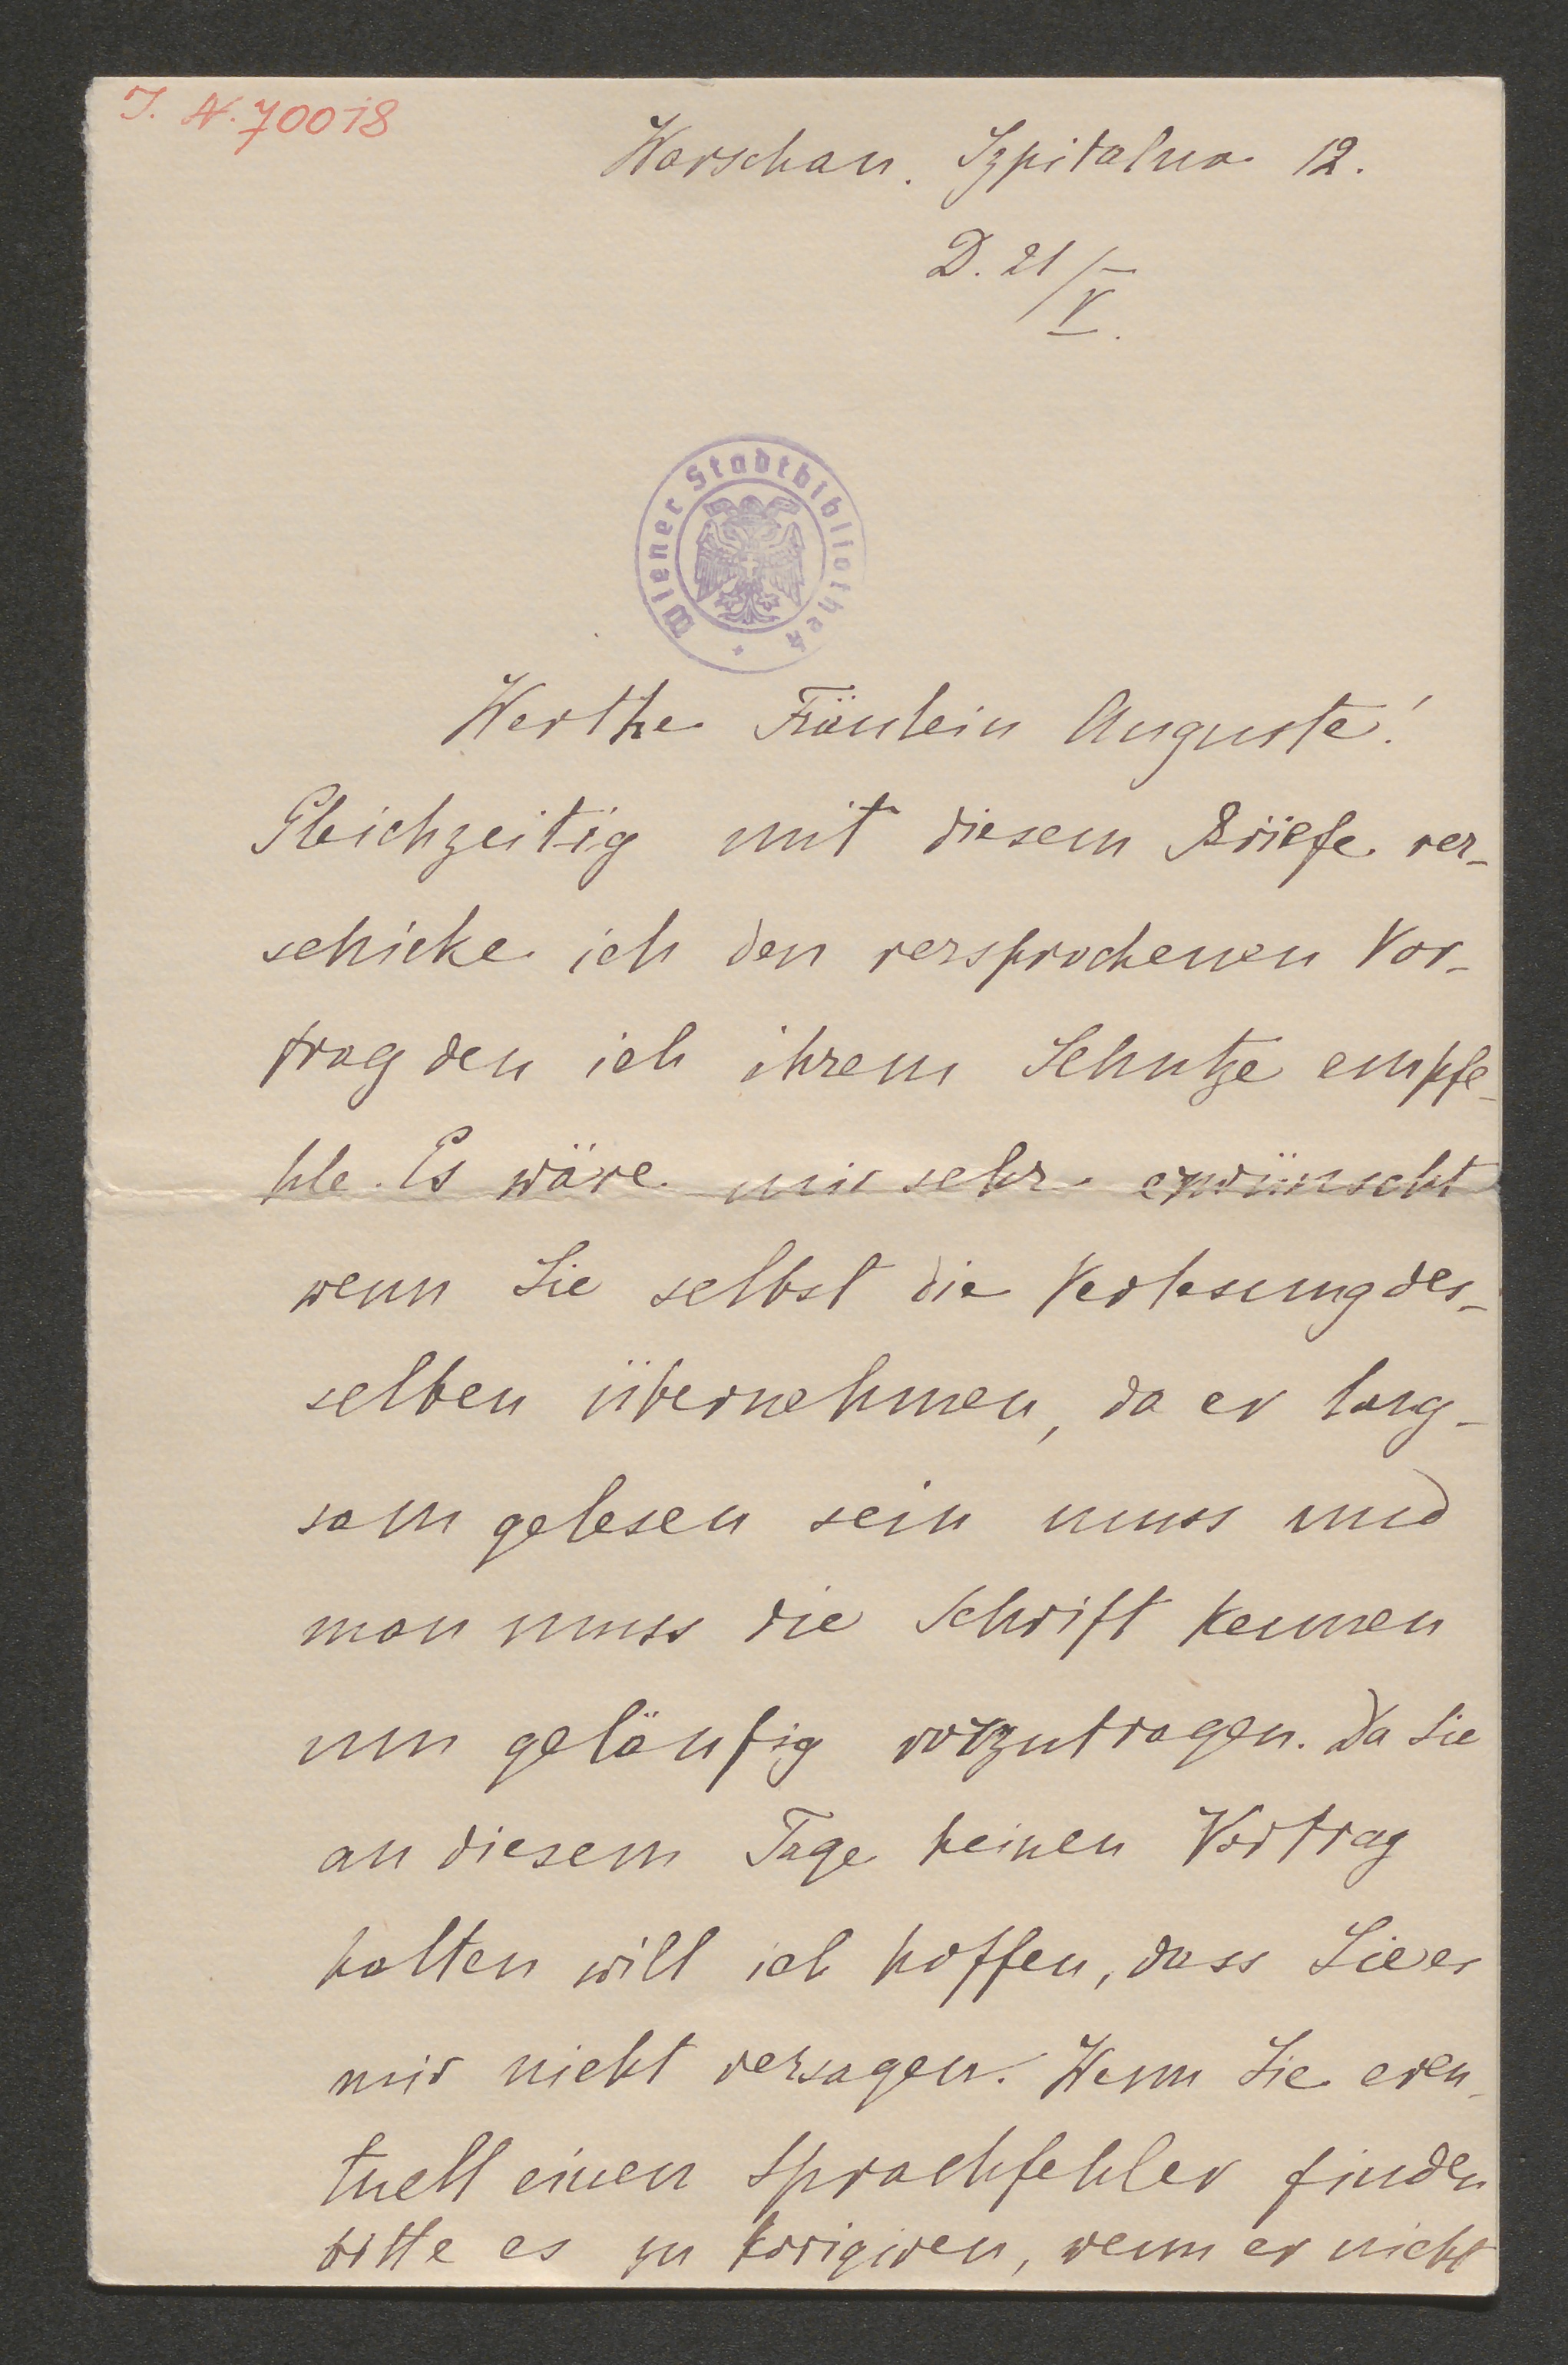 J. N. 70018
Warschau. Szpitalna 12.
D. 21/V.
Wiener Stadtbibliothek
Werthe Fräulein Auguste!
Gleichzeitig mit diesem Briefe ver-
schicke ich den versprochenen Vor-
trag den ich ihrem Schutze empfe-
hle. Es wäre mir sehr erwünscht
wenn Sie selbst die Verlesung des-
selben übernehmen, da er lang-
sam gelesen sein muss und
man muss die Schrift kennen
um geläufig vorzutragen. Da Sie
an diesem Tage keinen Vortrag
halten will ich hoffen, dass Sie es
mir nicht versagen. Wenn Sie even-
tuell einen Sprachfehler finden
bitte es zu korigiren, wenn er nicht